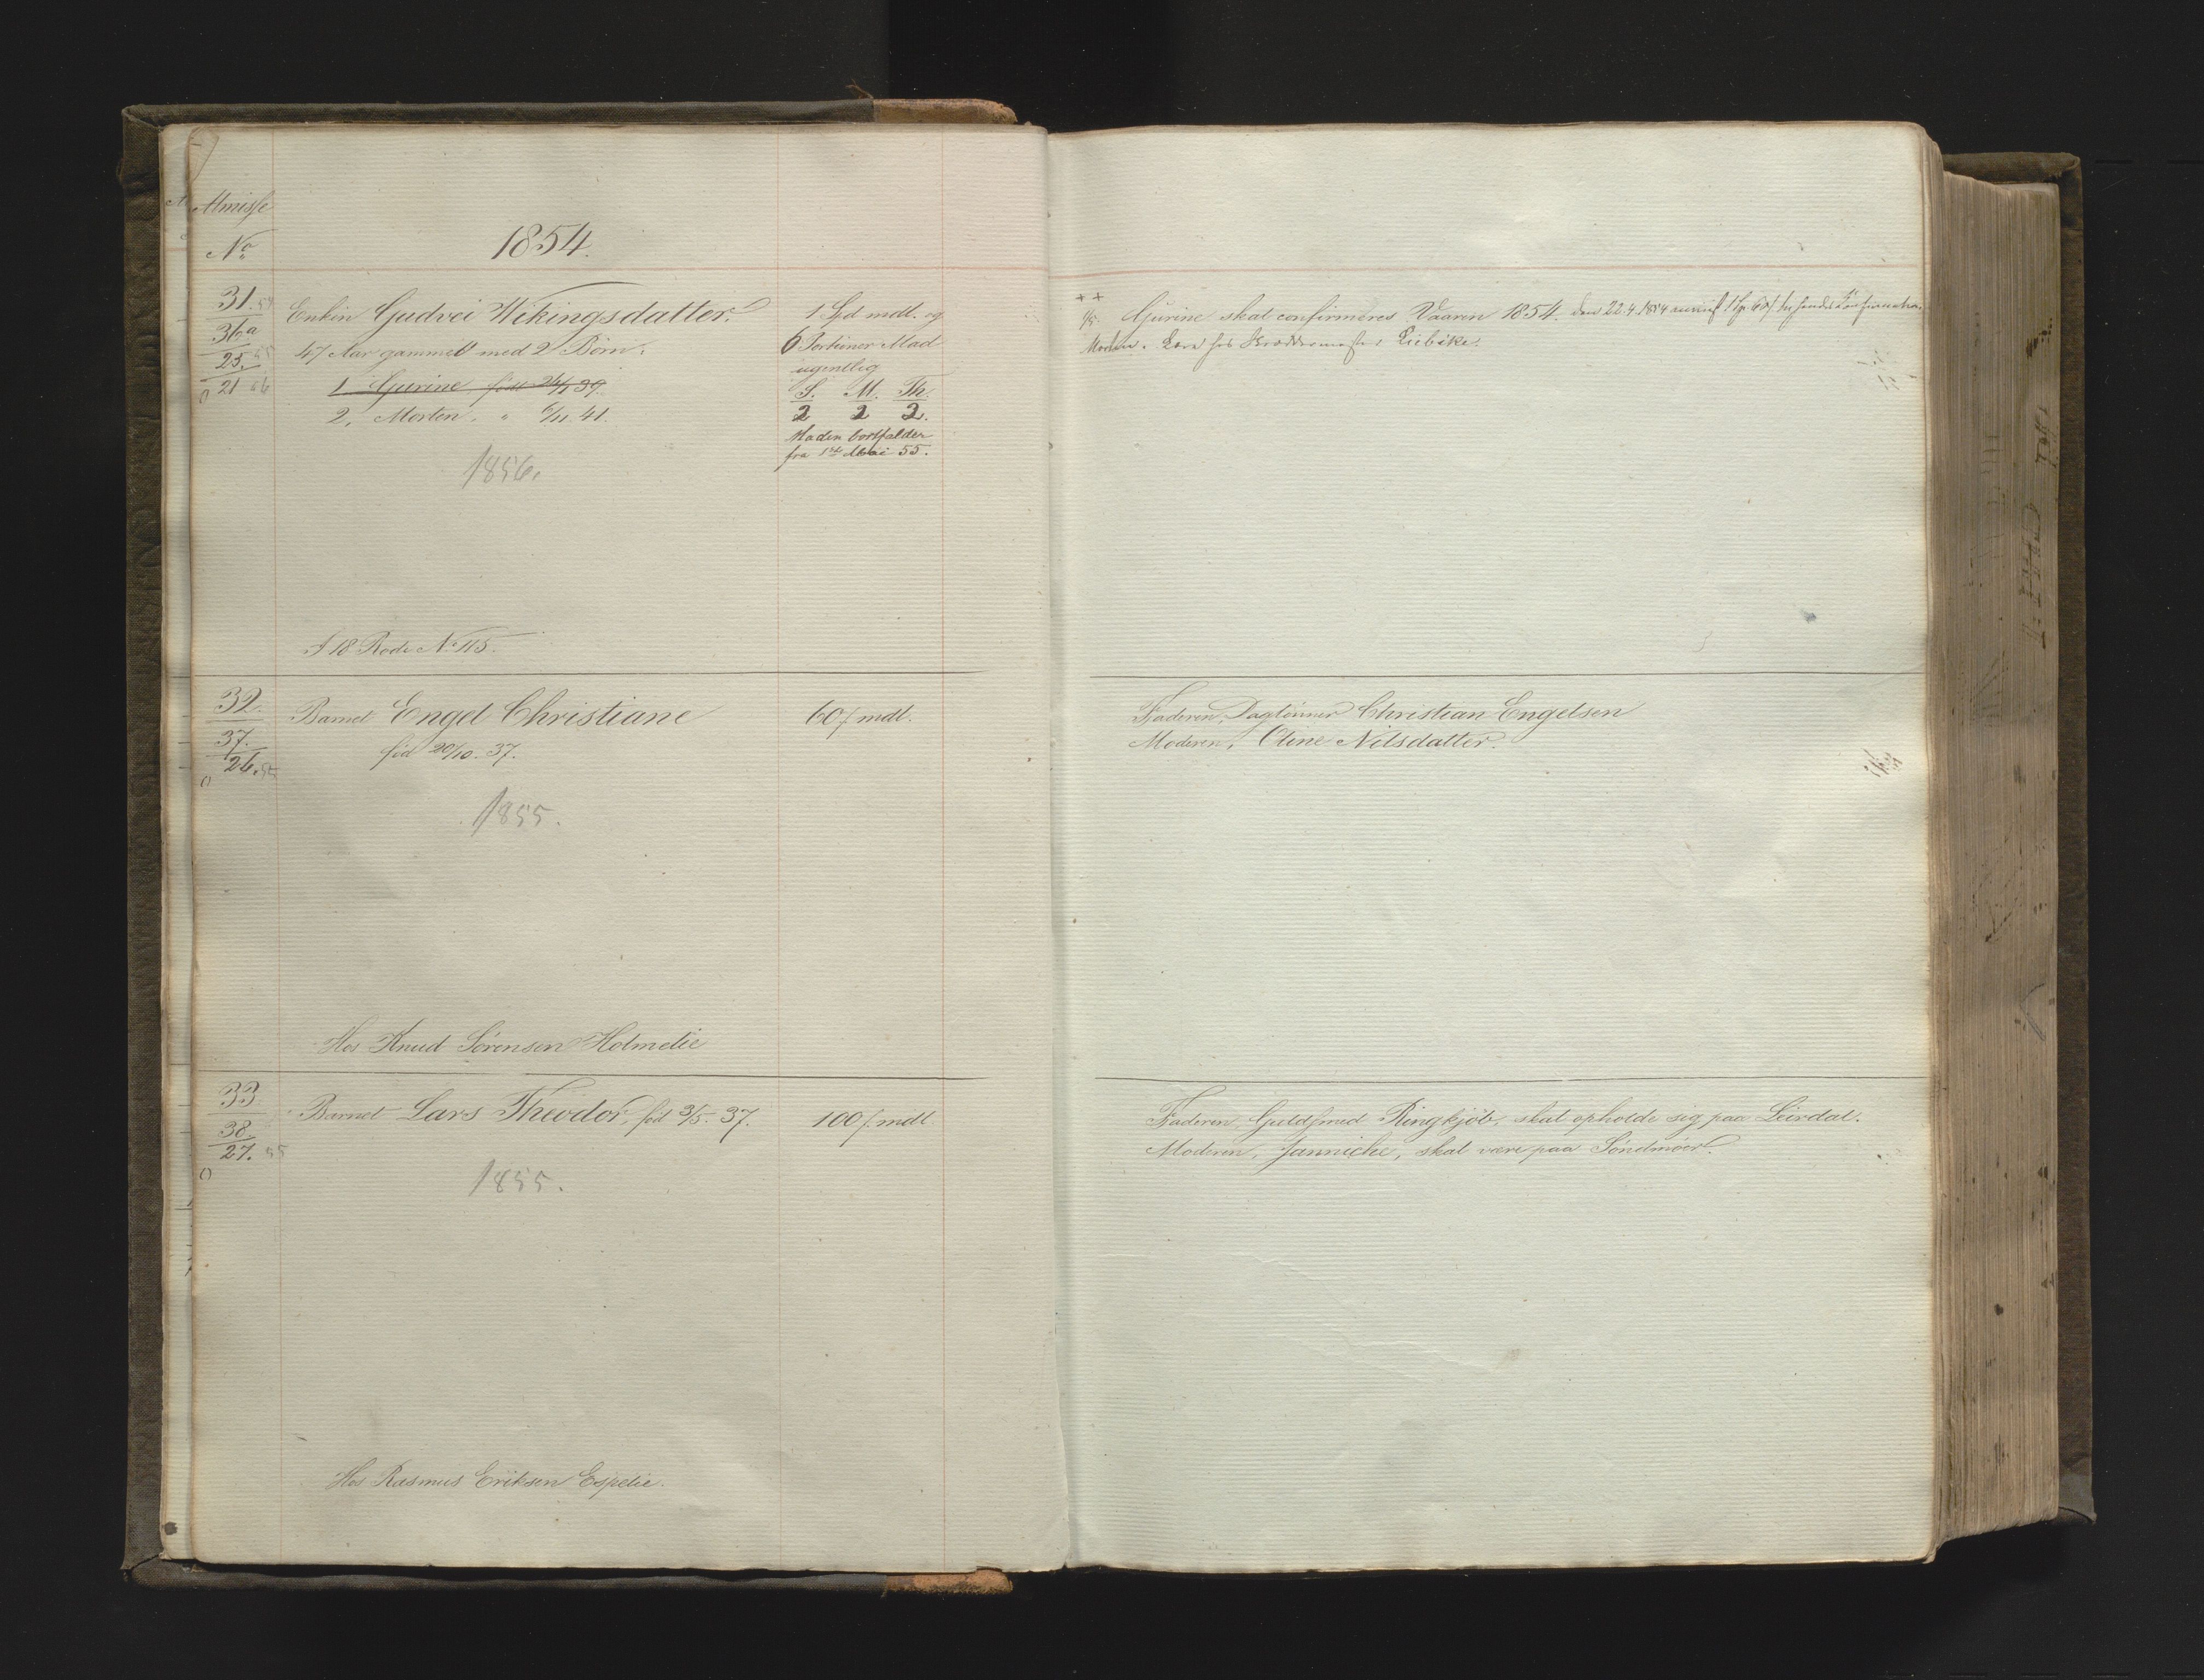 Almisse
No
1854.
31. 54
36a
25. 55
21 56
Enken Gudvei Wikingsdatter.
47 Aar gammel med 2 Börn:
1 Gurine född 26/1 39
2, Morten " 6/11 41.
1856.
I 18 Rode No 115.
1 Spd mdl. og
6 Portioner Mad
ugentlig
S. M. Th.
2 2 2.
Maden bortfalder
fra 1ste Mai 55.
Gurine skal confirmeres Vaaren 1854. den 22.4.1854
Morten Lære hos Skræddermester Liebike.
32.
37.
26. 55
Barnet Engel Christiane
föd 20/10. 37.
1855.
Hos Knud Sörensen Holmelie
60 ß mdl.
Faderen, Daglönner Christian Engelsen
Moderen, Oline Nilsdatter.
33.
38
27. 55
Barnet Lars Theodor, föd 3/5. 37.
1855.
Hos Rasmus Eriksen Espelie.
100 ß mdl
Faderen, Guldsmed Ringkjöb, skal opholde sig paa Leirdal.
Moderen, Jannicke, skal være paa Söndmöer.